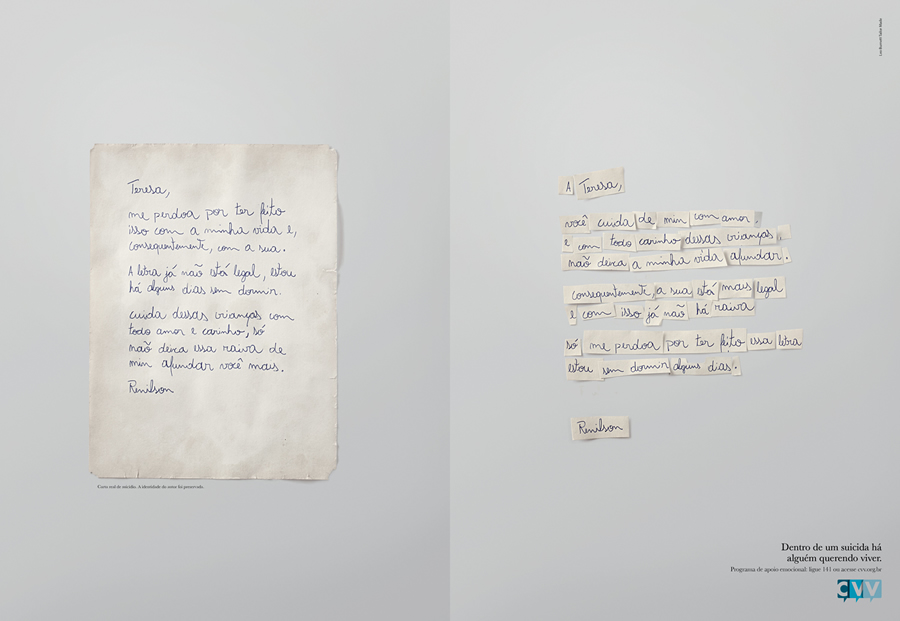 Teresa,
me perdoa por ter feito
isso com a minha vida e,
consequentemente, com a sua.
A letra já não está legal, estou
há alguns dias sem dormir.
cuida dessas crianças com
todo amor e carinho, só
não deixa essa raiva de
mim afundar você mais.
Renilson
Carta real de suicídio. A identidade do autor foi preservada.
A Teresa,
você cuida de mim com amor.
e com todo carinho dessas crianças,
não deixa a minha vida afundar.
consequentemente, a sua está mais legal
e com isso já não há raiva
só me perdoa por ter feito essa letra
estou sem dormir alguns dias.
Renilson
Leo Burnett Tailor Made
Dentro de um suicida há
alguém querendo viver.
Programa de apoio emocional: ligue 141 ou acesse cvv.org.br
CVV